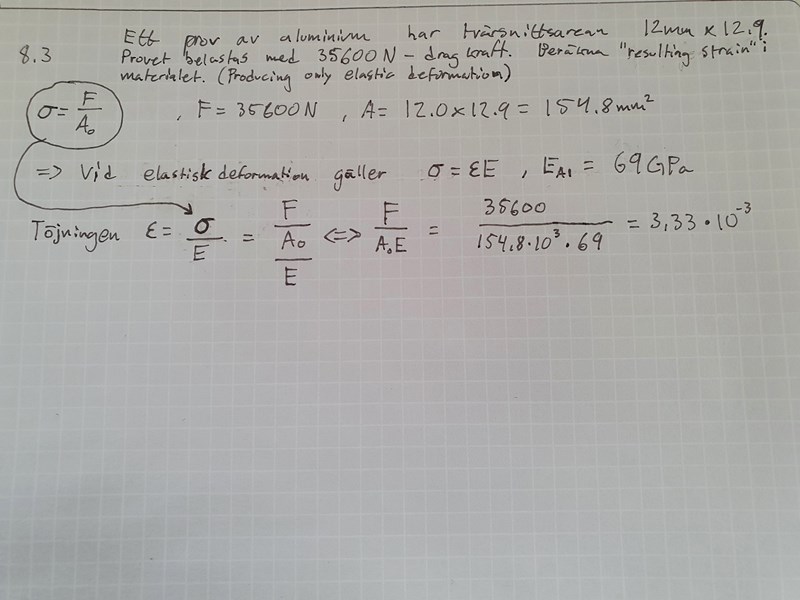 8.3 Ett prov av aluminium har tvärsnittsarean 12mm x 12.9.
Provet belastas med 35600N - dragkraft. Beräkna "resulting strain" i
materialet. (Producing only elastic deformation)
σ = F/A₀ , F = 35600N , A = 12.0 x 12.9 = 154.8mm²
=> Vid elastisk deformation gäller σ = εE , E_Al = 69GPa
Töjningen ε = σ/E = (F/A₀)/E <=> F/(A₀E) = 35600/(154.8·10³·69) = 3,33·10⁻³